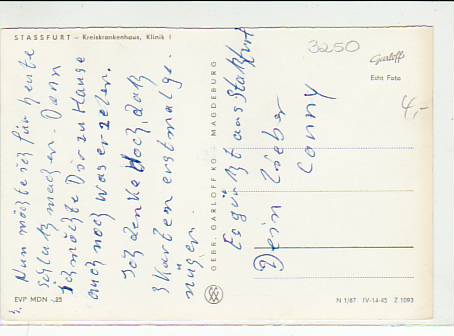 STASSFURT – Kreiskrankenhaus, Klinik I
3250
Garloff
Echt Foto
4,-
Nun möchte ich für heute
schluß machen. Denn
ich möchte Dir zu Hause
auch noch was erzelen.
Ich denke doch, daß
3 Karten erstmal ge-
nügen.
Es grüßt aus Staßfurt
Dein lieber
Conny
GEBR. GARLOFF KG – MAGDEBURG
3.
EVP MDN -.25
N 1/67 IV-14-45 Z 1093